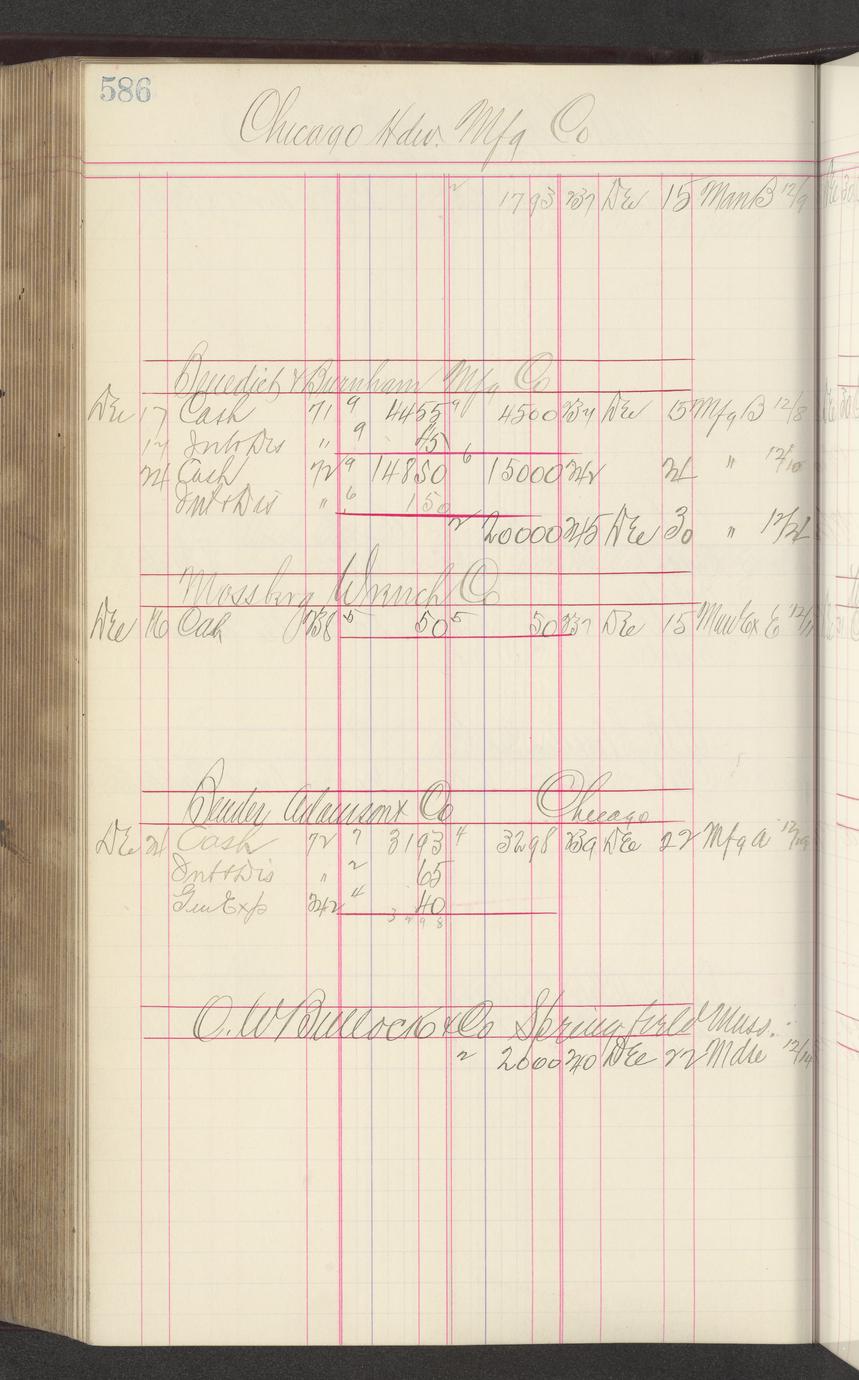 586
Chicago Hdw. Mfg Co
2 1793 237 Dec 15 Man B 12/9
Benedict & Burnham Mfg Co
Dec 17 Cash 71 9 4455 9 4500 237 Dec 15 Mfg B 12/8
17 Int & Dis " 9 45
24 Cash 72 9 14850 6 15000 242 24 " 12/10
Int & Dis " 6 150
2 20000 245 Dec 30 " 12/21
Mossberg Wrench Co
Dec 16 Cash 238 5 50 5 50 237 Dec 15 Man Ex E 12/11
Bender Adamson & Co Chicago
Dec 24 Cash 72 7 3193 4 3298 239 Dec 22 Mfg A 12/19
Int & Dis " 2 65
Gen Exp 242 4 40
3298
O. W Bullock & Co Springfield Mass.
2 2000 240 Dec 22 Mdse 12/14